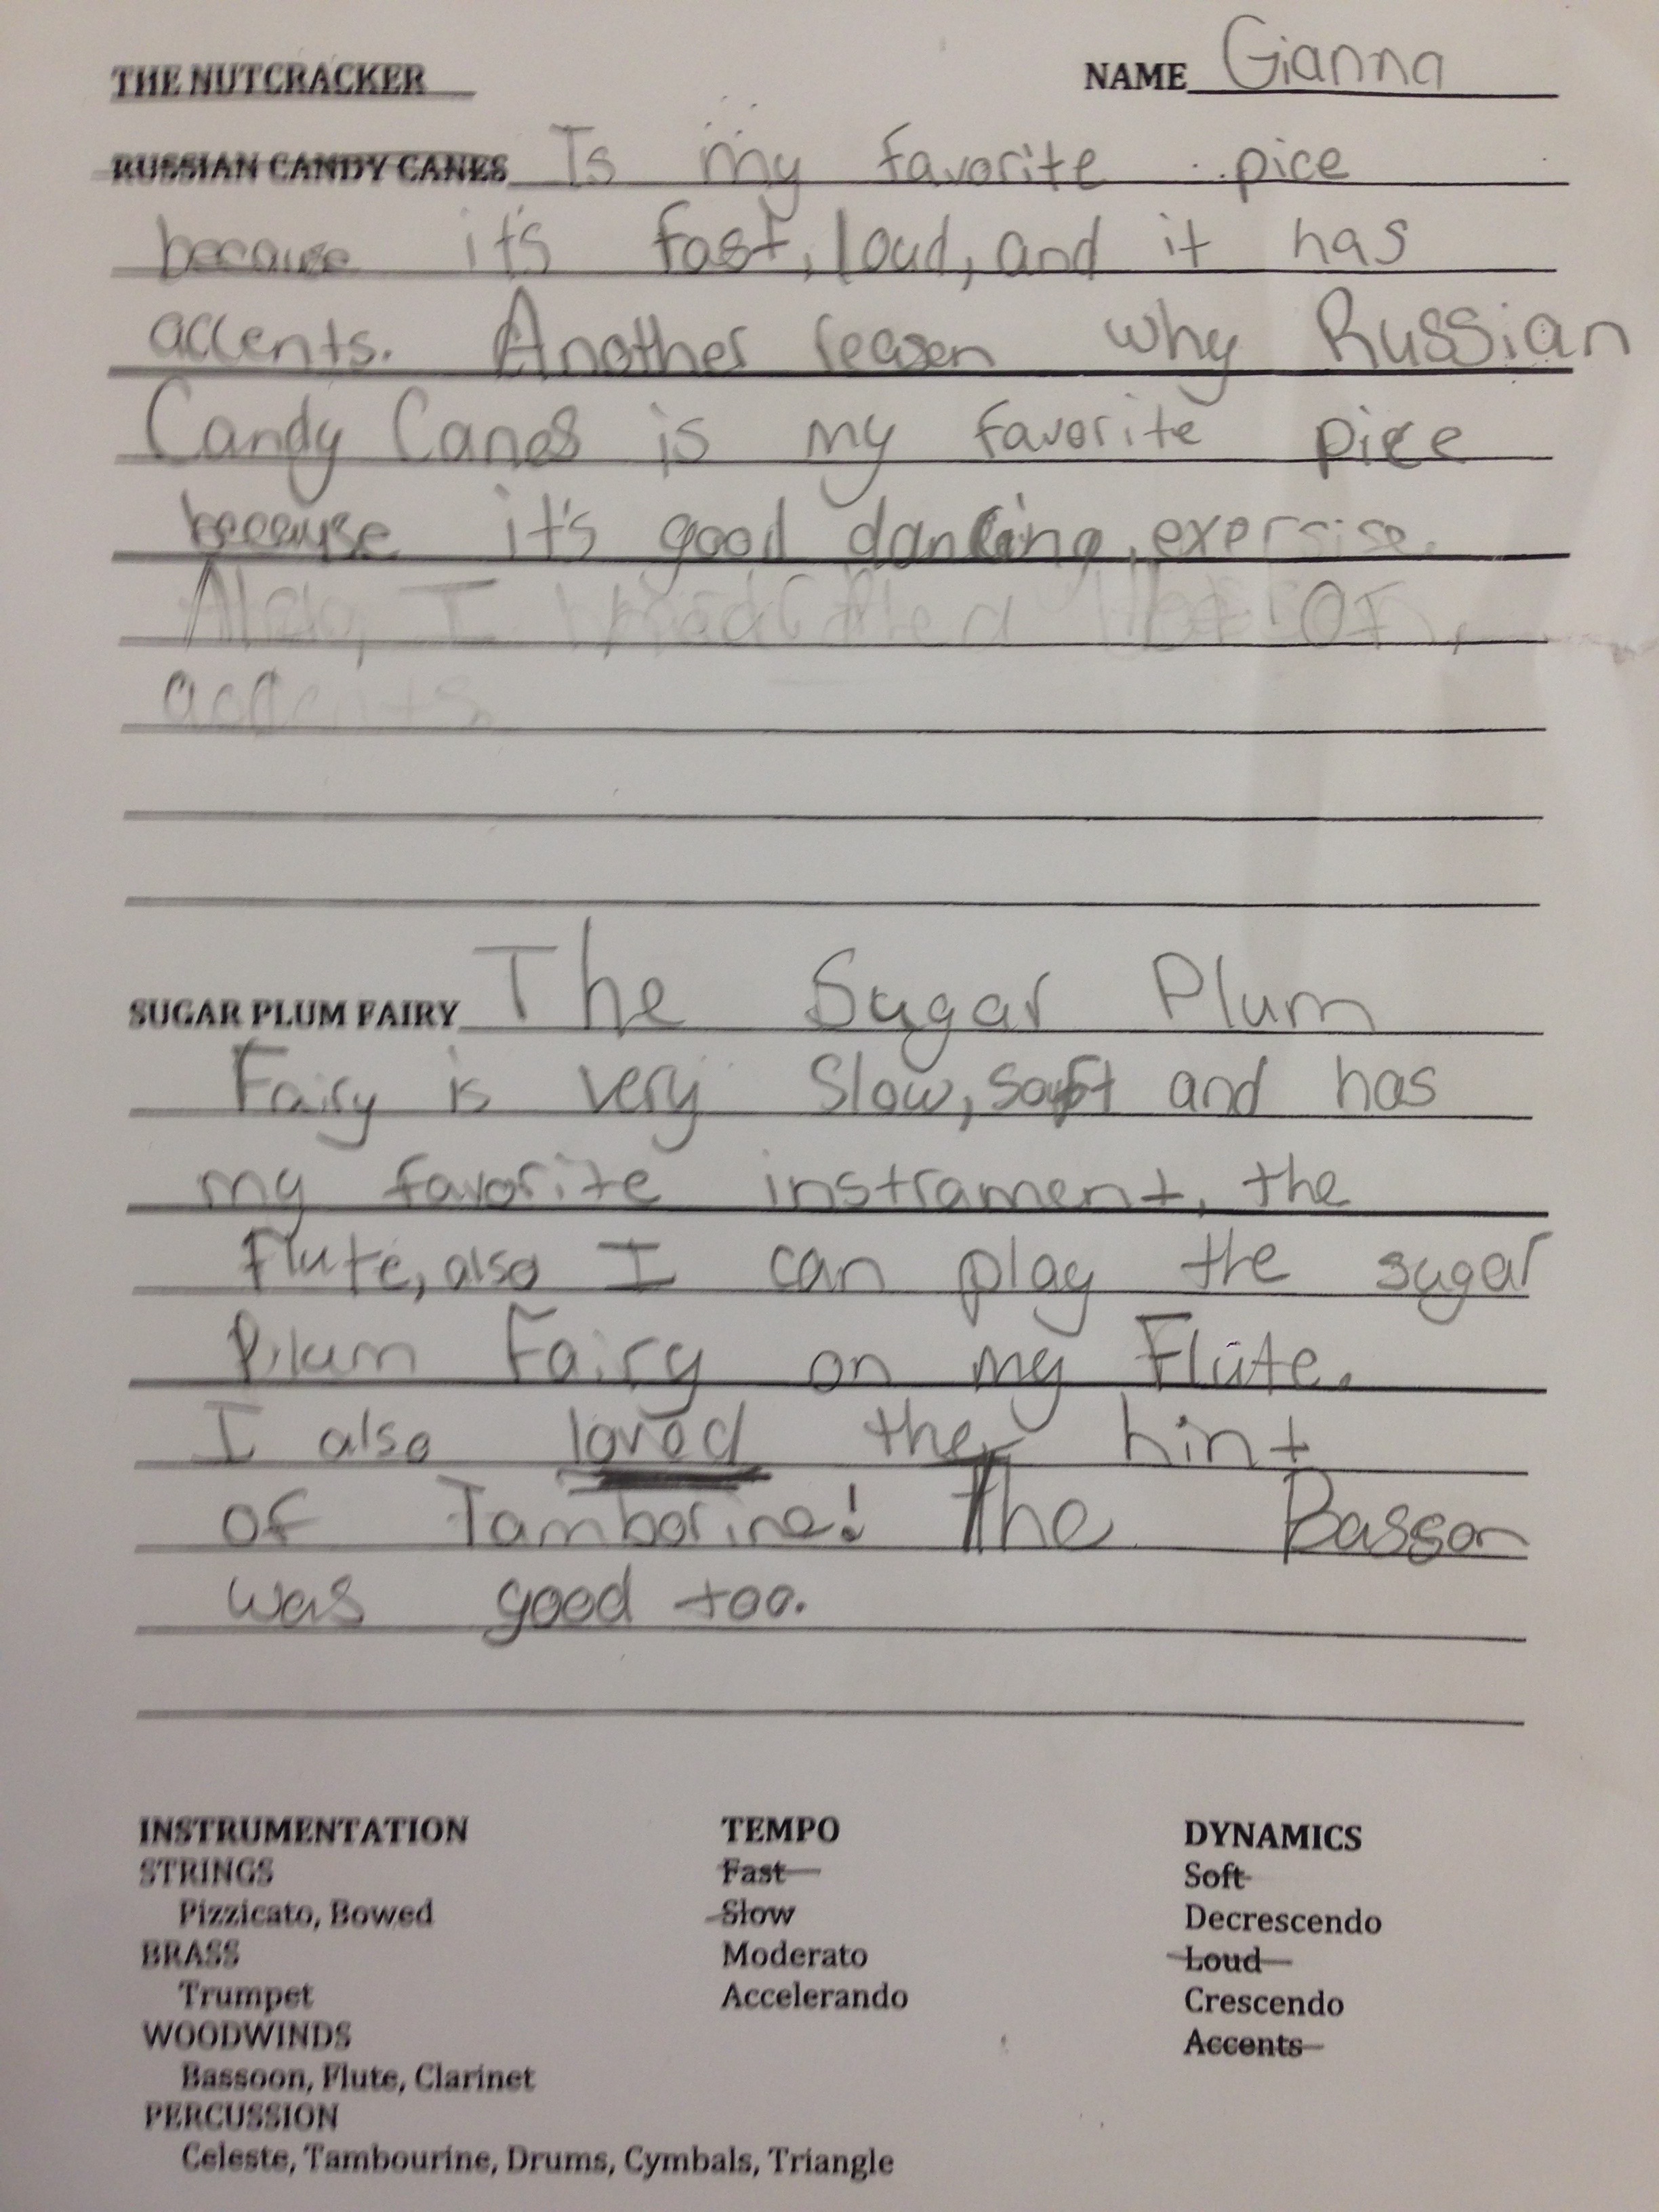 THE NUTCRACKER NAME Gianna
RUSSIAN CANDY CANES Is my favorite pice
because it's fast, loud, and it has
accents. Another reasen why Russian
Candy Canes is my favorite pice
because it's good dancing, exersise.
Also, I of,
accents.
SUGAR PLUM FAIRY The Sugar Plum
Fairy is very Slow, soft and has
my favorite instrament, the
Flute, also I can play the sugar
Plum Fairy on my Flute.
I also loved the hint
of Tamborine! The Basson
was good too.
INSTRUMENTATION TEMPO DYNAMICS
STRINGS Fast Soft
Pizzicato, Bowed Slow Decrescendo
BRASS Moderato Loud
Trumpet Accelerando Crescendo
WOODWINDS Accents
Bassoon, Flute, Clarinet
PERCUSSION
Celeste, Tambourine, Drums, Cymbals, Triangle